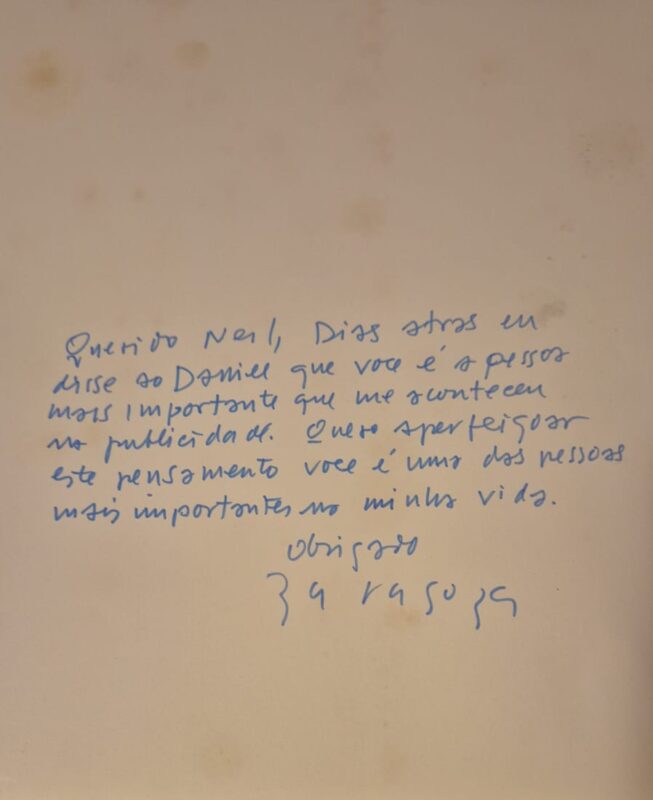 Querido Neil, Dias atras eu
disse ao Daniel que voce é a pessoa
mais importante que me aconteceu
na publicidade. Quero aperfeiçoar
este pensamento voce é uma das pessoas
mais importantes na minha vida.
obrigado
Zaragoza